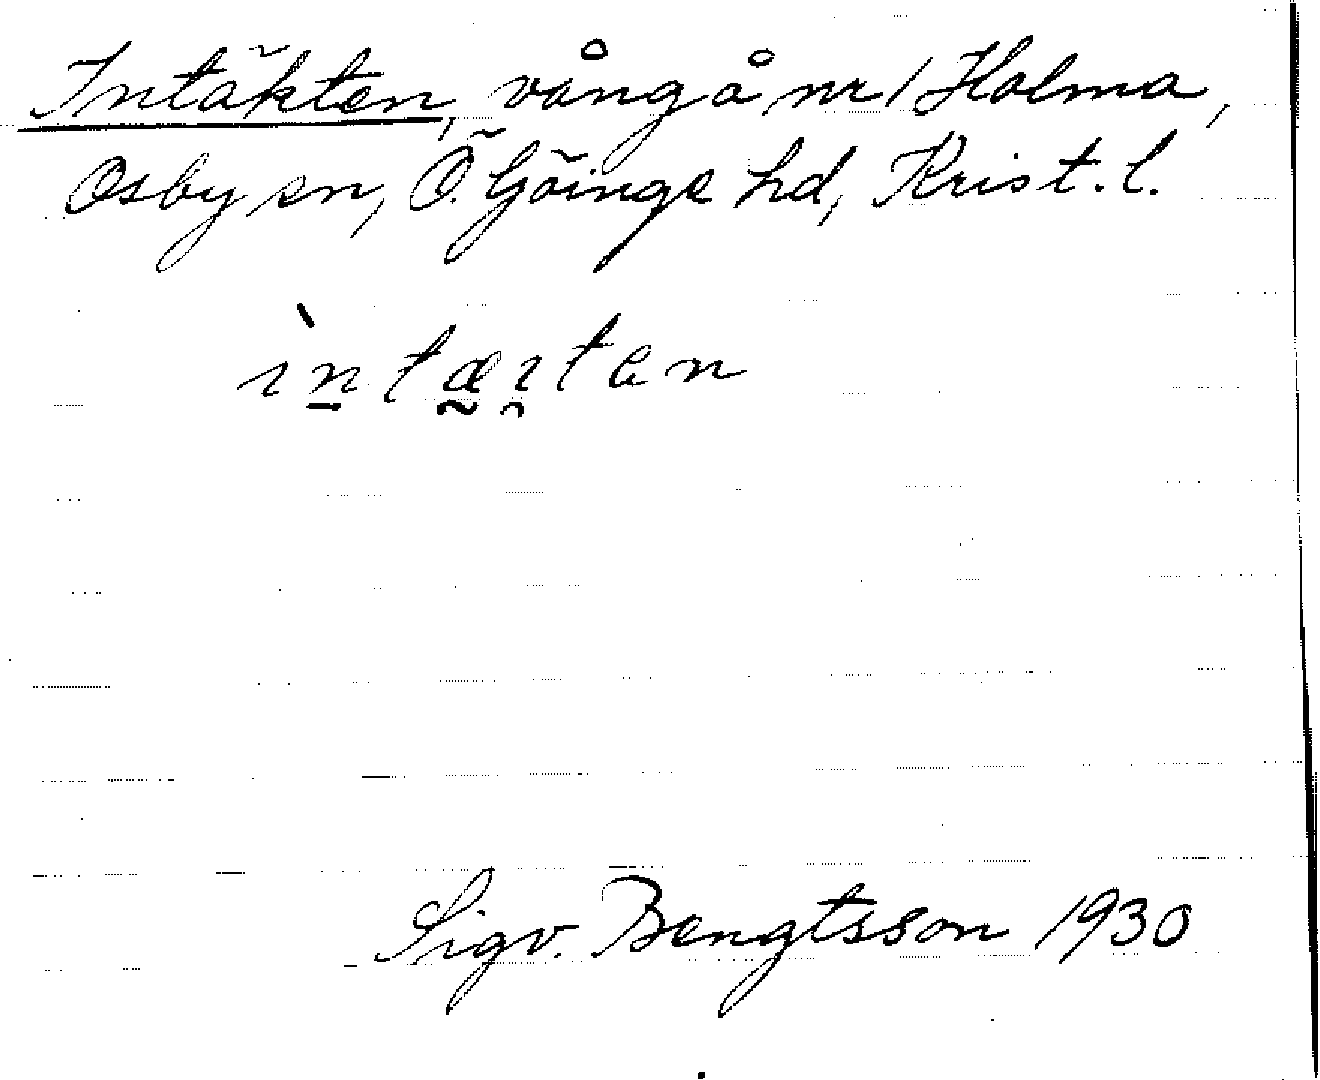 Intäkten, vång å nr 1 Holma,
Osby sn, Ö. Göinge hd, Krist. l.
ìn̠tæ̰ı̯ten
Sigv. Bengtsson 1930